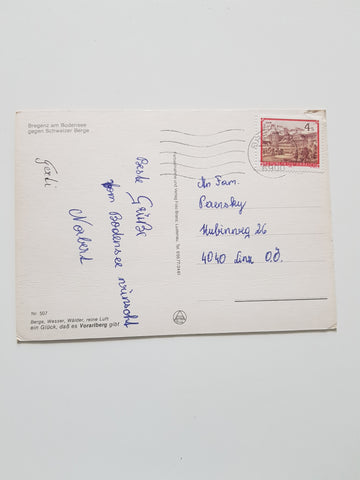 Bregenz am Bodensee
gegen Schweizer Berge
Beste Grüße
vom Bodensee wünscht
Norbert
Gerti
An Fam.
4040 Linz O.Ö.
4
6900
Nr. 507
Berge, Wasser, Wälder, reine Luft
ein Glück, daß es Vorarlberg gibt